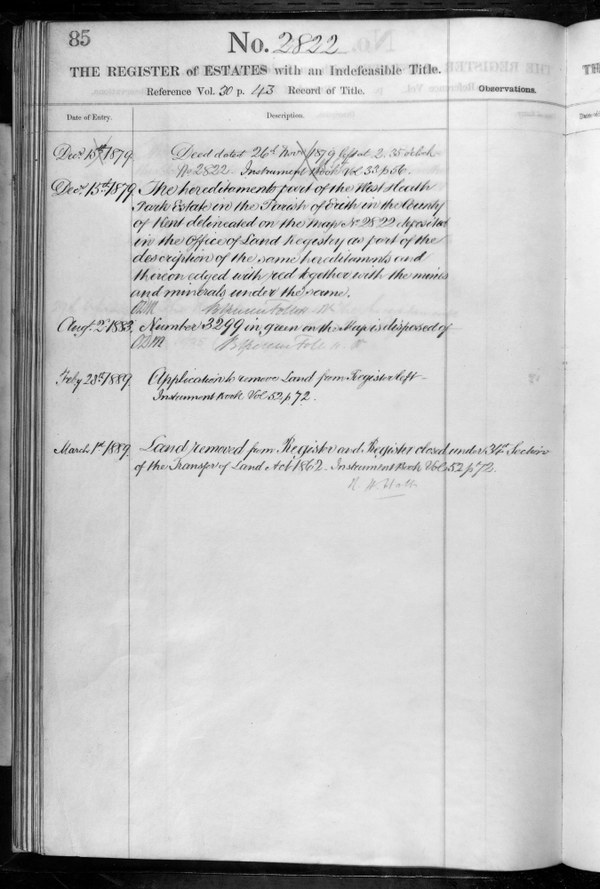 85
No. 2822
THE REGISTER of ESTATES with an Indefeasible Title.
Reference Vol. 30 p. 43 Record of Title.
Observations.
Date of Entry.
Description.
Decr. 15th 1879.
Deed dated 26th Novr. 1879 left at 2.35 o'clock
No 2822 Instrument Book Vol 33 p 56.
Decr. 15th 1879.
The hereditaments part of the West Heath
Park Estate in the Parish of Erith in the County
of Kent delineated on the Map No 2822 deposited
in the Office of Land Registry as part of the
description of the same hereditaments and
thereon edged with red together with the mines
and minerals under the same.
Augt. 2d 1883.
Number 3299 in green on the Map is disposed of
Feby 28th 1889.
Application to remove Land from Register left
Instrument Book Vol 52 p 72.
March 1st 1889.
Land removed from Register and Register closed under 34th Section
of the Transfer of Land Act 1862. Instrument Book Vol 52 p 72.